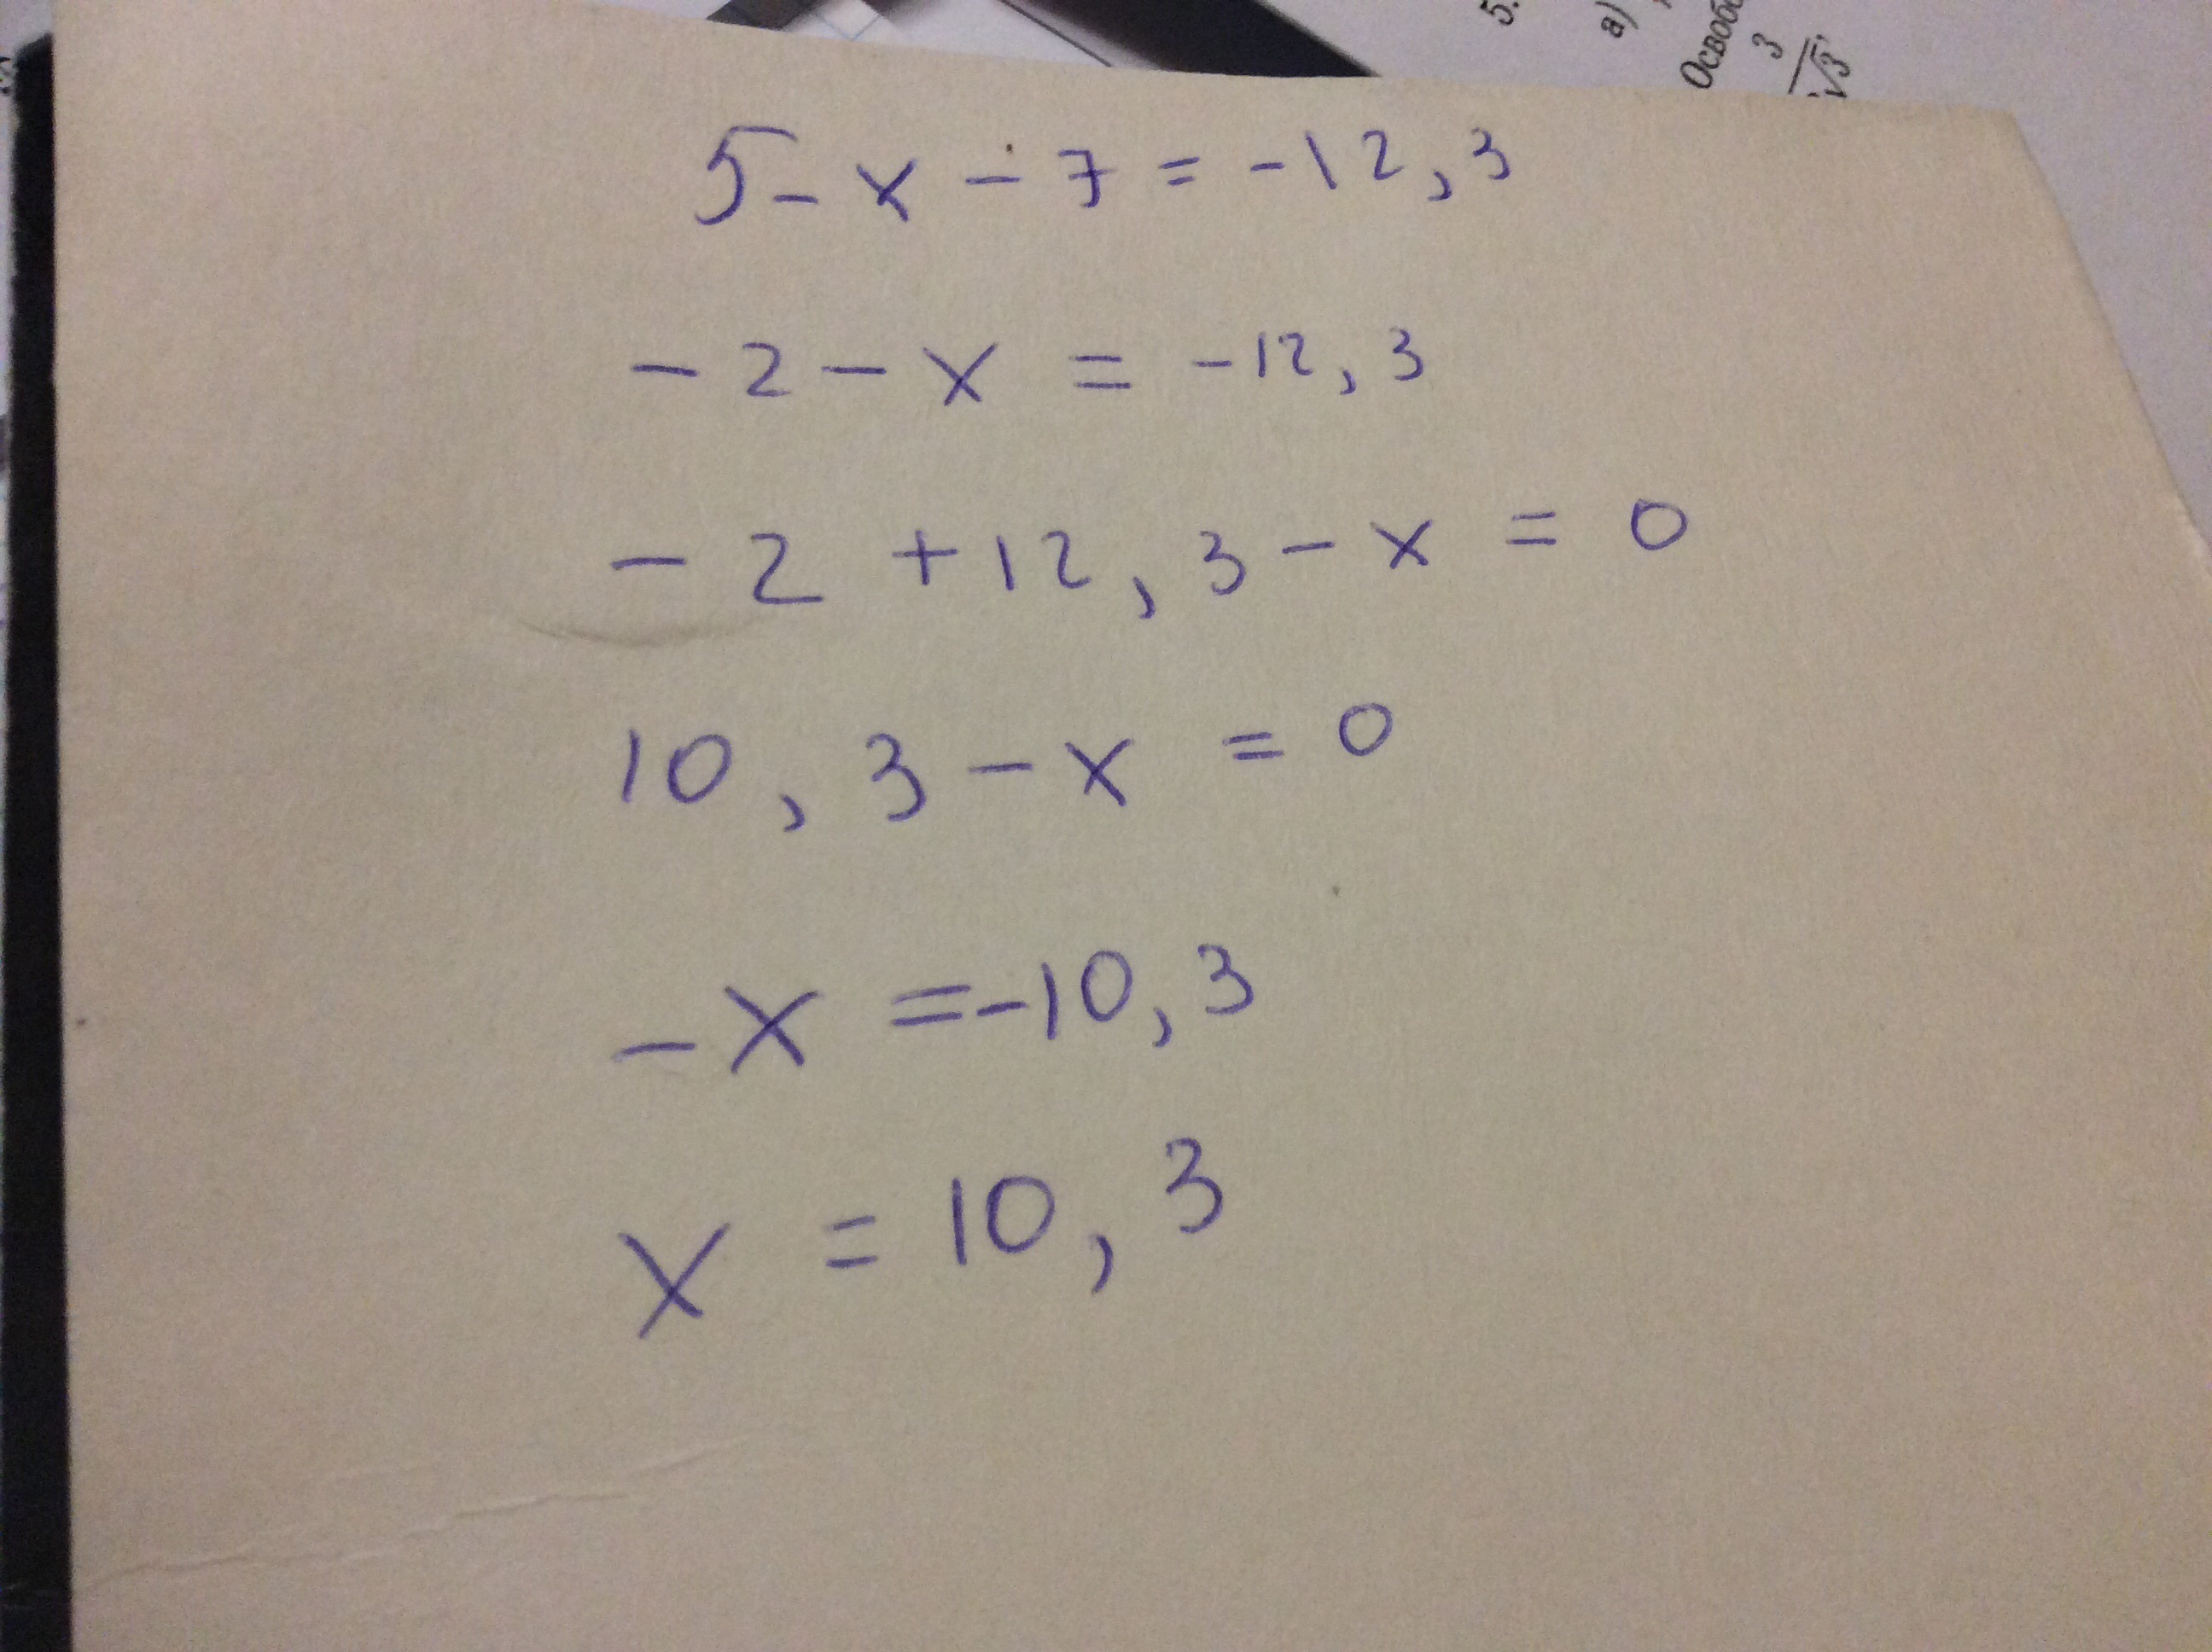 5 - x - 7 = -12,3
- 2 - x = -12,3
- 2 + 12,3 - x = 0
10,3 - x = 0
- x = -10,3
x = 10,3
5.
а)
3
√3